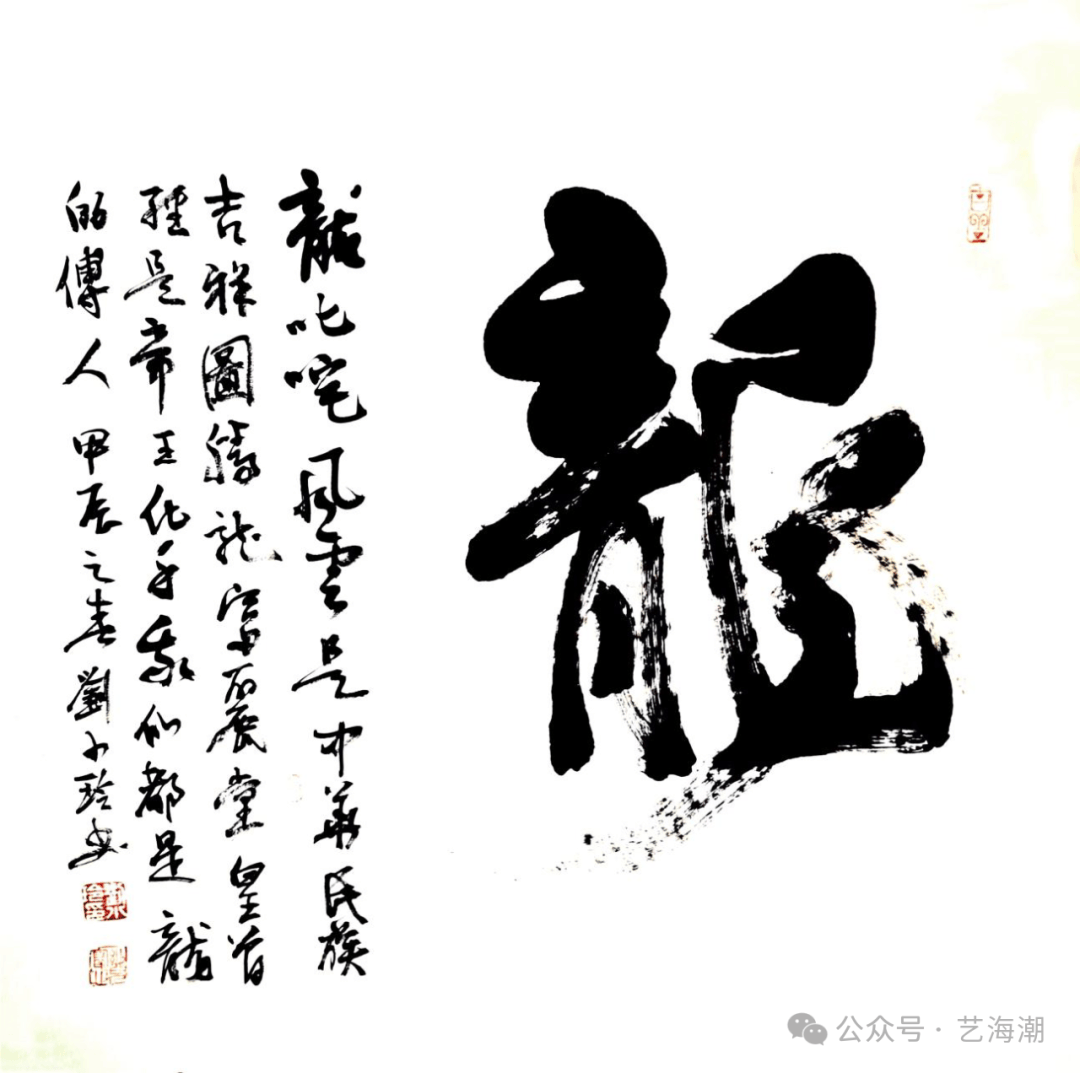 龍
龍叱咤風雲是中華民族
吉祥圖騰龙富麗堂皇曾
經是帝王化身我们都是龍
的傳人 甲辰之春 劉小玲書
公众号 · 艺海潮